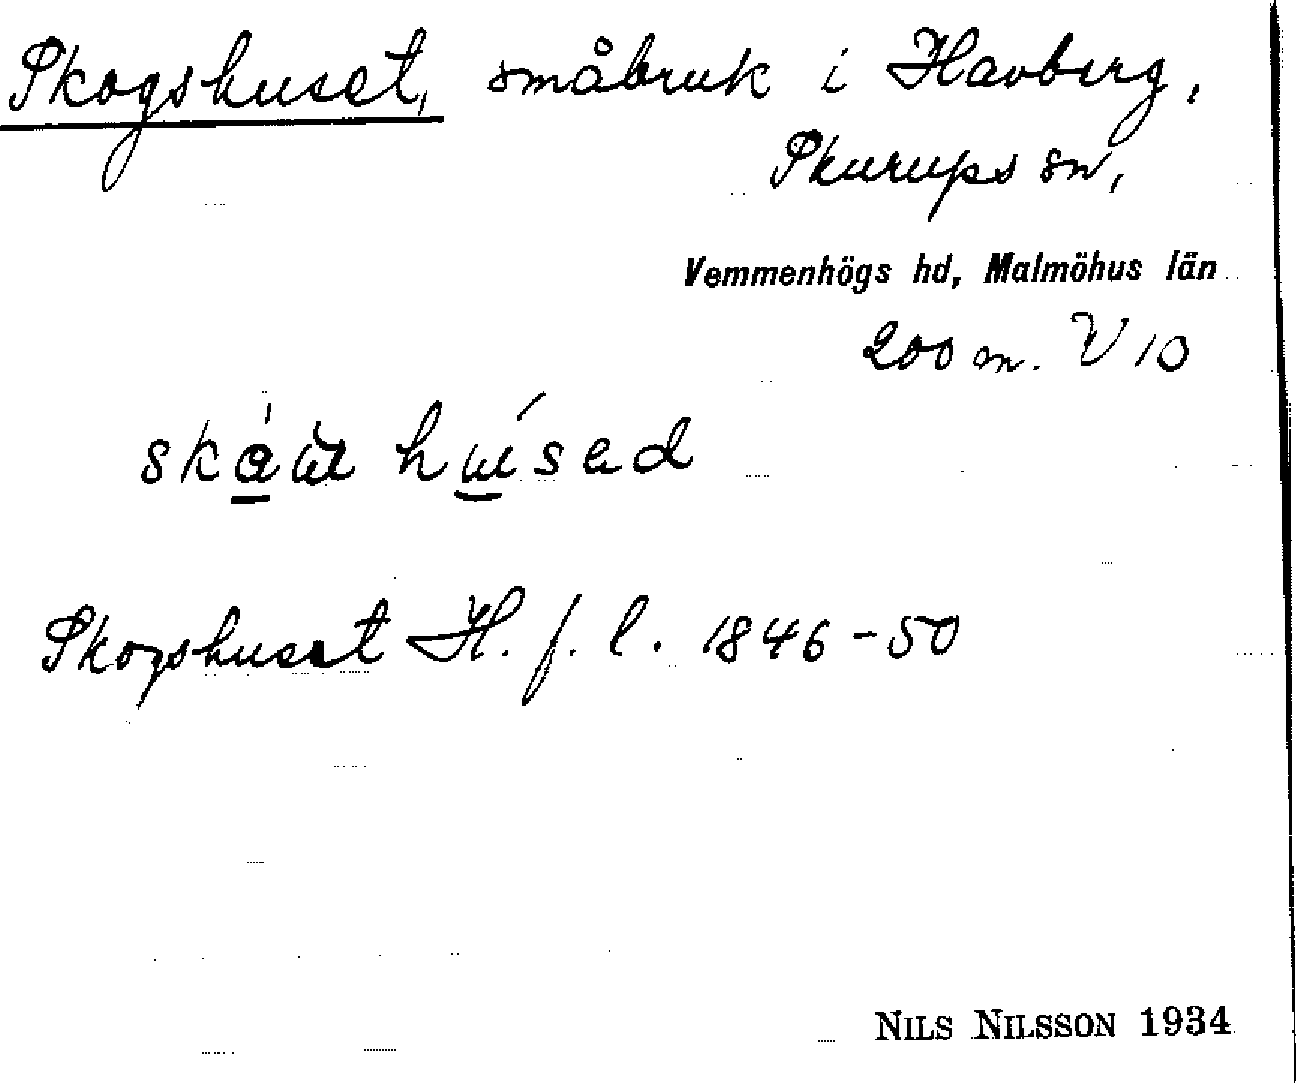 Skogshuset, småbruk i Havberg,
Skurups sn,
Vemmenhögs hd, Malmöhus län
200 m. V 10
Skogshuset H. f. l. 1846-50
NILS NILSSON 1934